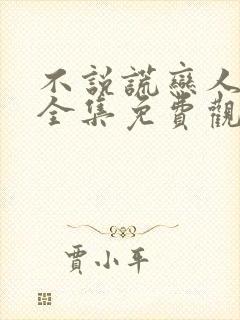 不說謊戀人
全集免費觀
賈小平